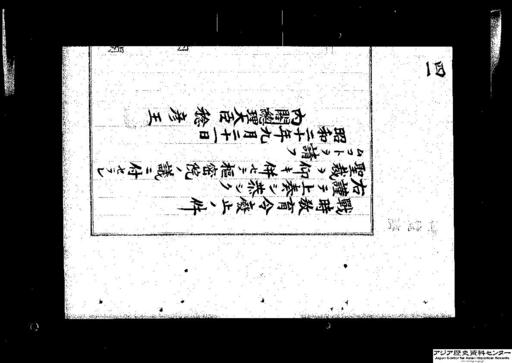 四一
戰時教育令廢止ノ件
右謹テ上奏シ恭シク
聖裁ヲ仰キ併セテ樞密院ノ議ニ付セラレ
ムコトヲ請フ
昭和二十年九月二十一日
內閣總理大臣 稔彥王
アジア歴史資料センター
Japan Center for Asian Historical Records